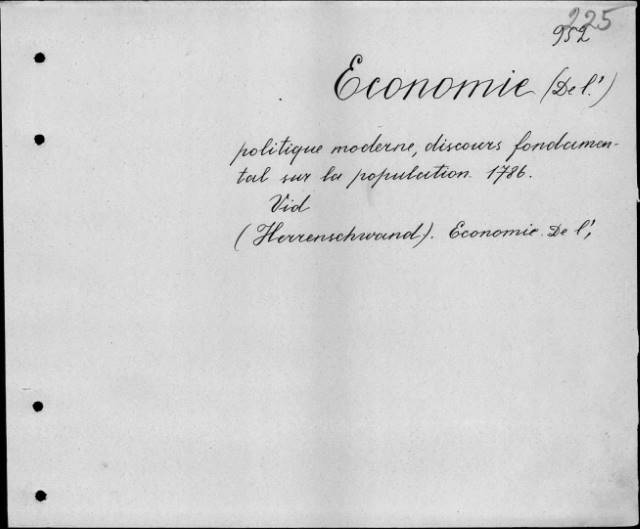 225
952
Economie (De l'.)
politique moderne, discours fondamen-
tal sur la population. 1786.
Vid
(Herrenschwand). Economie. De l',